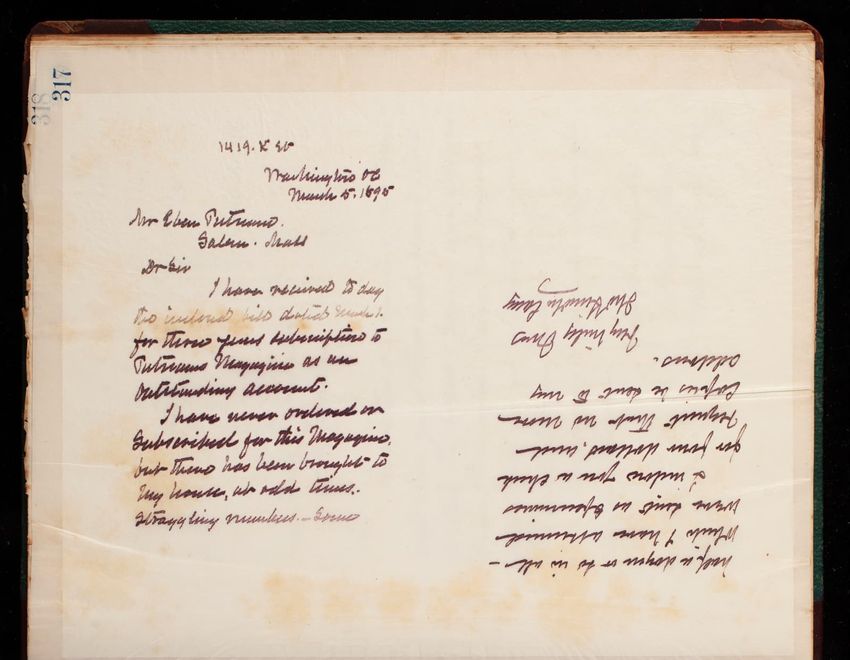 318
317
1419. K St
Washington DC
March 5. 1895
Mr Eben Putnam.
Salem. Mass
Dr Sir
I have received to day
the inclosed bill dated March 1.
for three years subscription to
Putnams Magazine as an
outstanding account.
I have never ordered or
Subscribed for this Magazine.
but there has been brought to
my house, at odd times,
straggling numbers. - Some
half a dozen or so in all -
Which I have assumed
were sent as specimens
I inclose you a check
for four dollars, and
request that no more
Copies be sent to my
address.
Very truly Yours